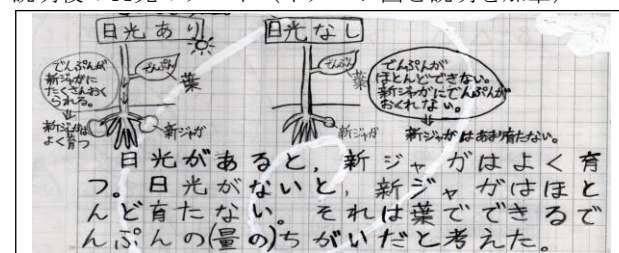 日光あり
日光なし
でんぷん
葉
でんぷんが
新ジャガに
たくさんおく
られる。
新ジャガは
よく育つ
新ジャガ
でんぷん
葉
でんぷんが
ほとんどできない。
新ジャガにでんぷんが
おくれない。
新ジャガ
新ジャガはあまり育たない。
日光があると,新ジャガはよく育
つ。日光がないと,新ジャガはほと
んど育たない。それは葉でできるで
んぷんの(量の)ちがいだと考えた。